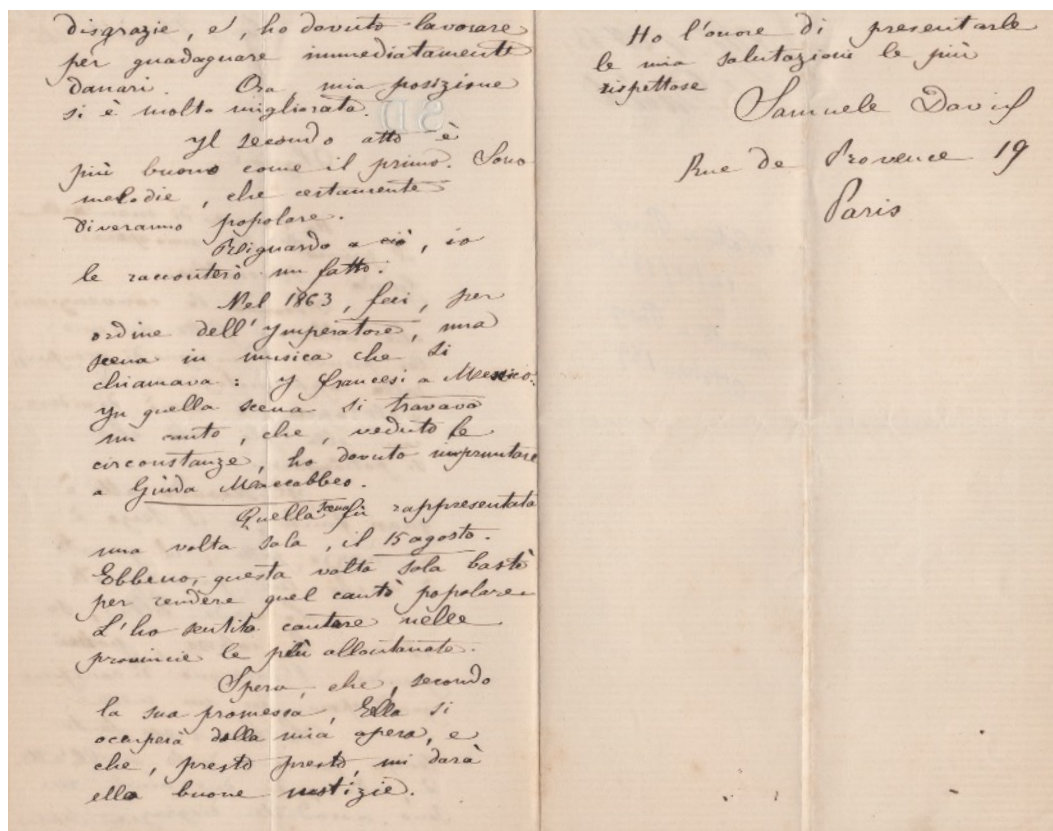 disgrazie, e, ho dovuto lavorare
per guadagnare immediatamente
danari. Ora, mia posizione
si è molto migliorata.
SD
Yl secondo atto è
più buono come il primo. Sono
melodie, che certamente
diveranno popolare.
Riguardo a ciò, io
le racconterò un fatto.
Nel 1863, feci, per
ordine dell'Ymperatore, una
scena in musica che si
chiamava: Y francesi a Messico.
Yn quella scena si travava
un canto, che, veduto le
circonstanze, ho dovuto impruntare
a Giuda Maccabbeo.
Quella scena fù rappresentata
una volta sola, il 15 agosto.
Ebbeno, questa volta sola bastò
per rendere quel cantò popolare.
L'ho sentito cantare nelle
provincie le più allontanate.
Spero, che, secondo
la sua promessa, Ella si
occuperà dolla mia opera, e
che, presto presto, mi darà
ella buone nostizie.
Ho l'onore di presentarle
le mia salutazioni le più
rispettose
Samuele David
Rue de Provence 19
Paris